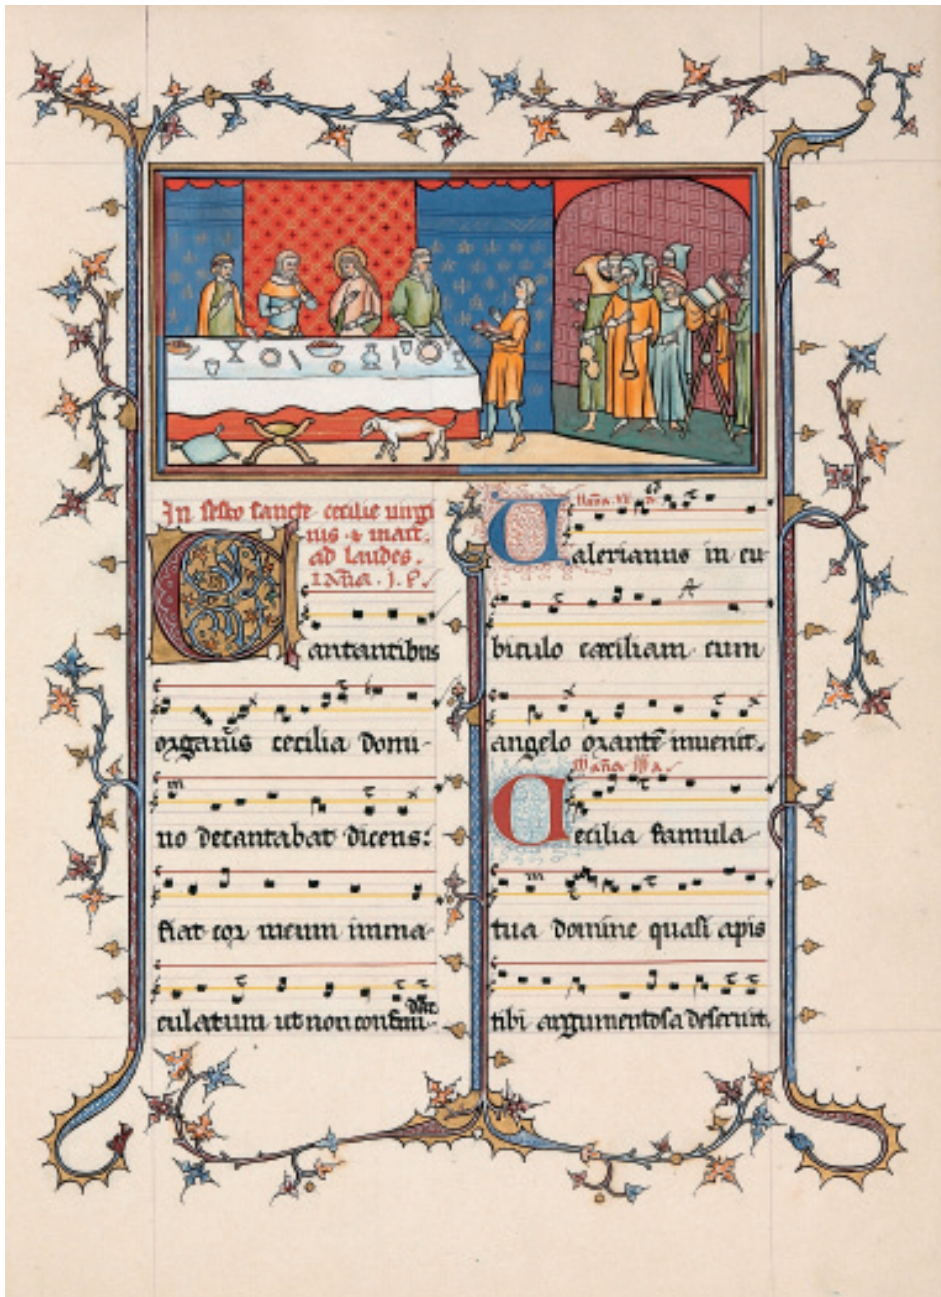 In festo sancte cecilie virgi
nis · & mart.
ad laudes.
antantibus
organis cecilia domi-
no decantabat dicens:
fiat cor meum imma-
culatum ut non confun-
dar.
Ualerianus in cu-
biculo ceciliam cum
angelo orante invenit.
Cecilia famula
tua domine quasi apis
tibi argumentosa deservit.